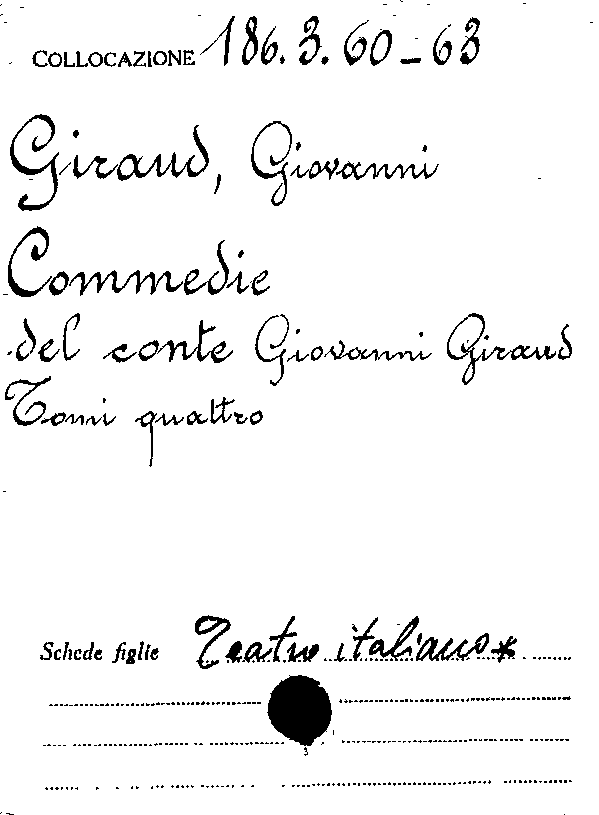 COLLOCAZIONE 186.3.60-63
Giraud, Giovanni
Commedie
del conte Giovanni Giraud
Tomi quattro
Schede figlie Teatro italiano*